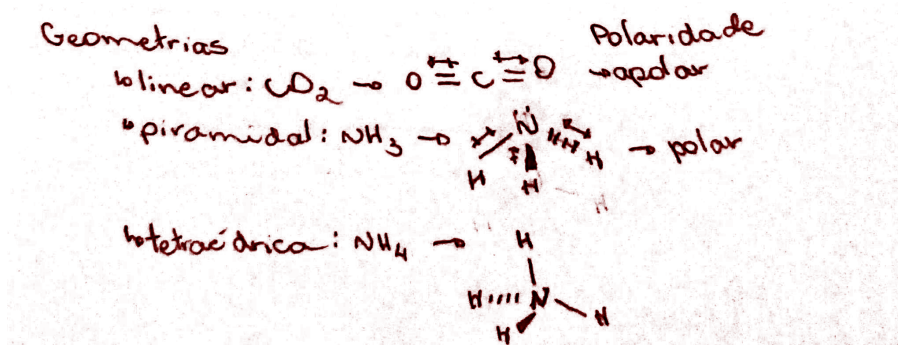 Geometrias Polaridade
↳ linear: CO₂ → O=C=O → apolar
↳ piramidal: NH₃ → N H H H → polar
↳ tetraédrica: NH₄ → H
H N H
H